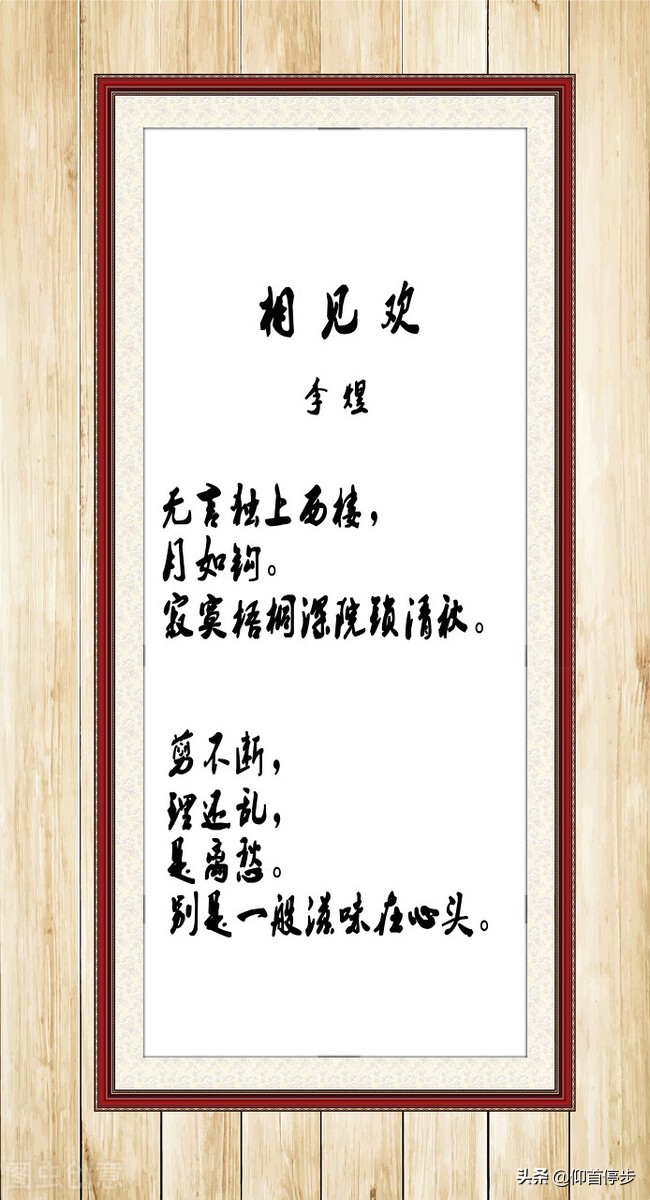 相见欢
李煜
无言独上西楼，
月如钩。
寂寞梧桐深院锁清秋。
剪不断，
理还乱，
是离愁。
别是一般滋味在心头。
头条 @仰首停步